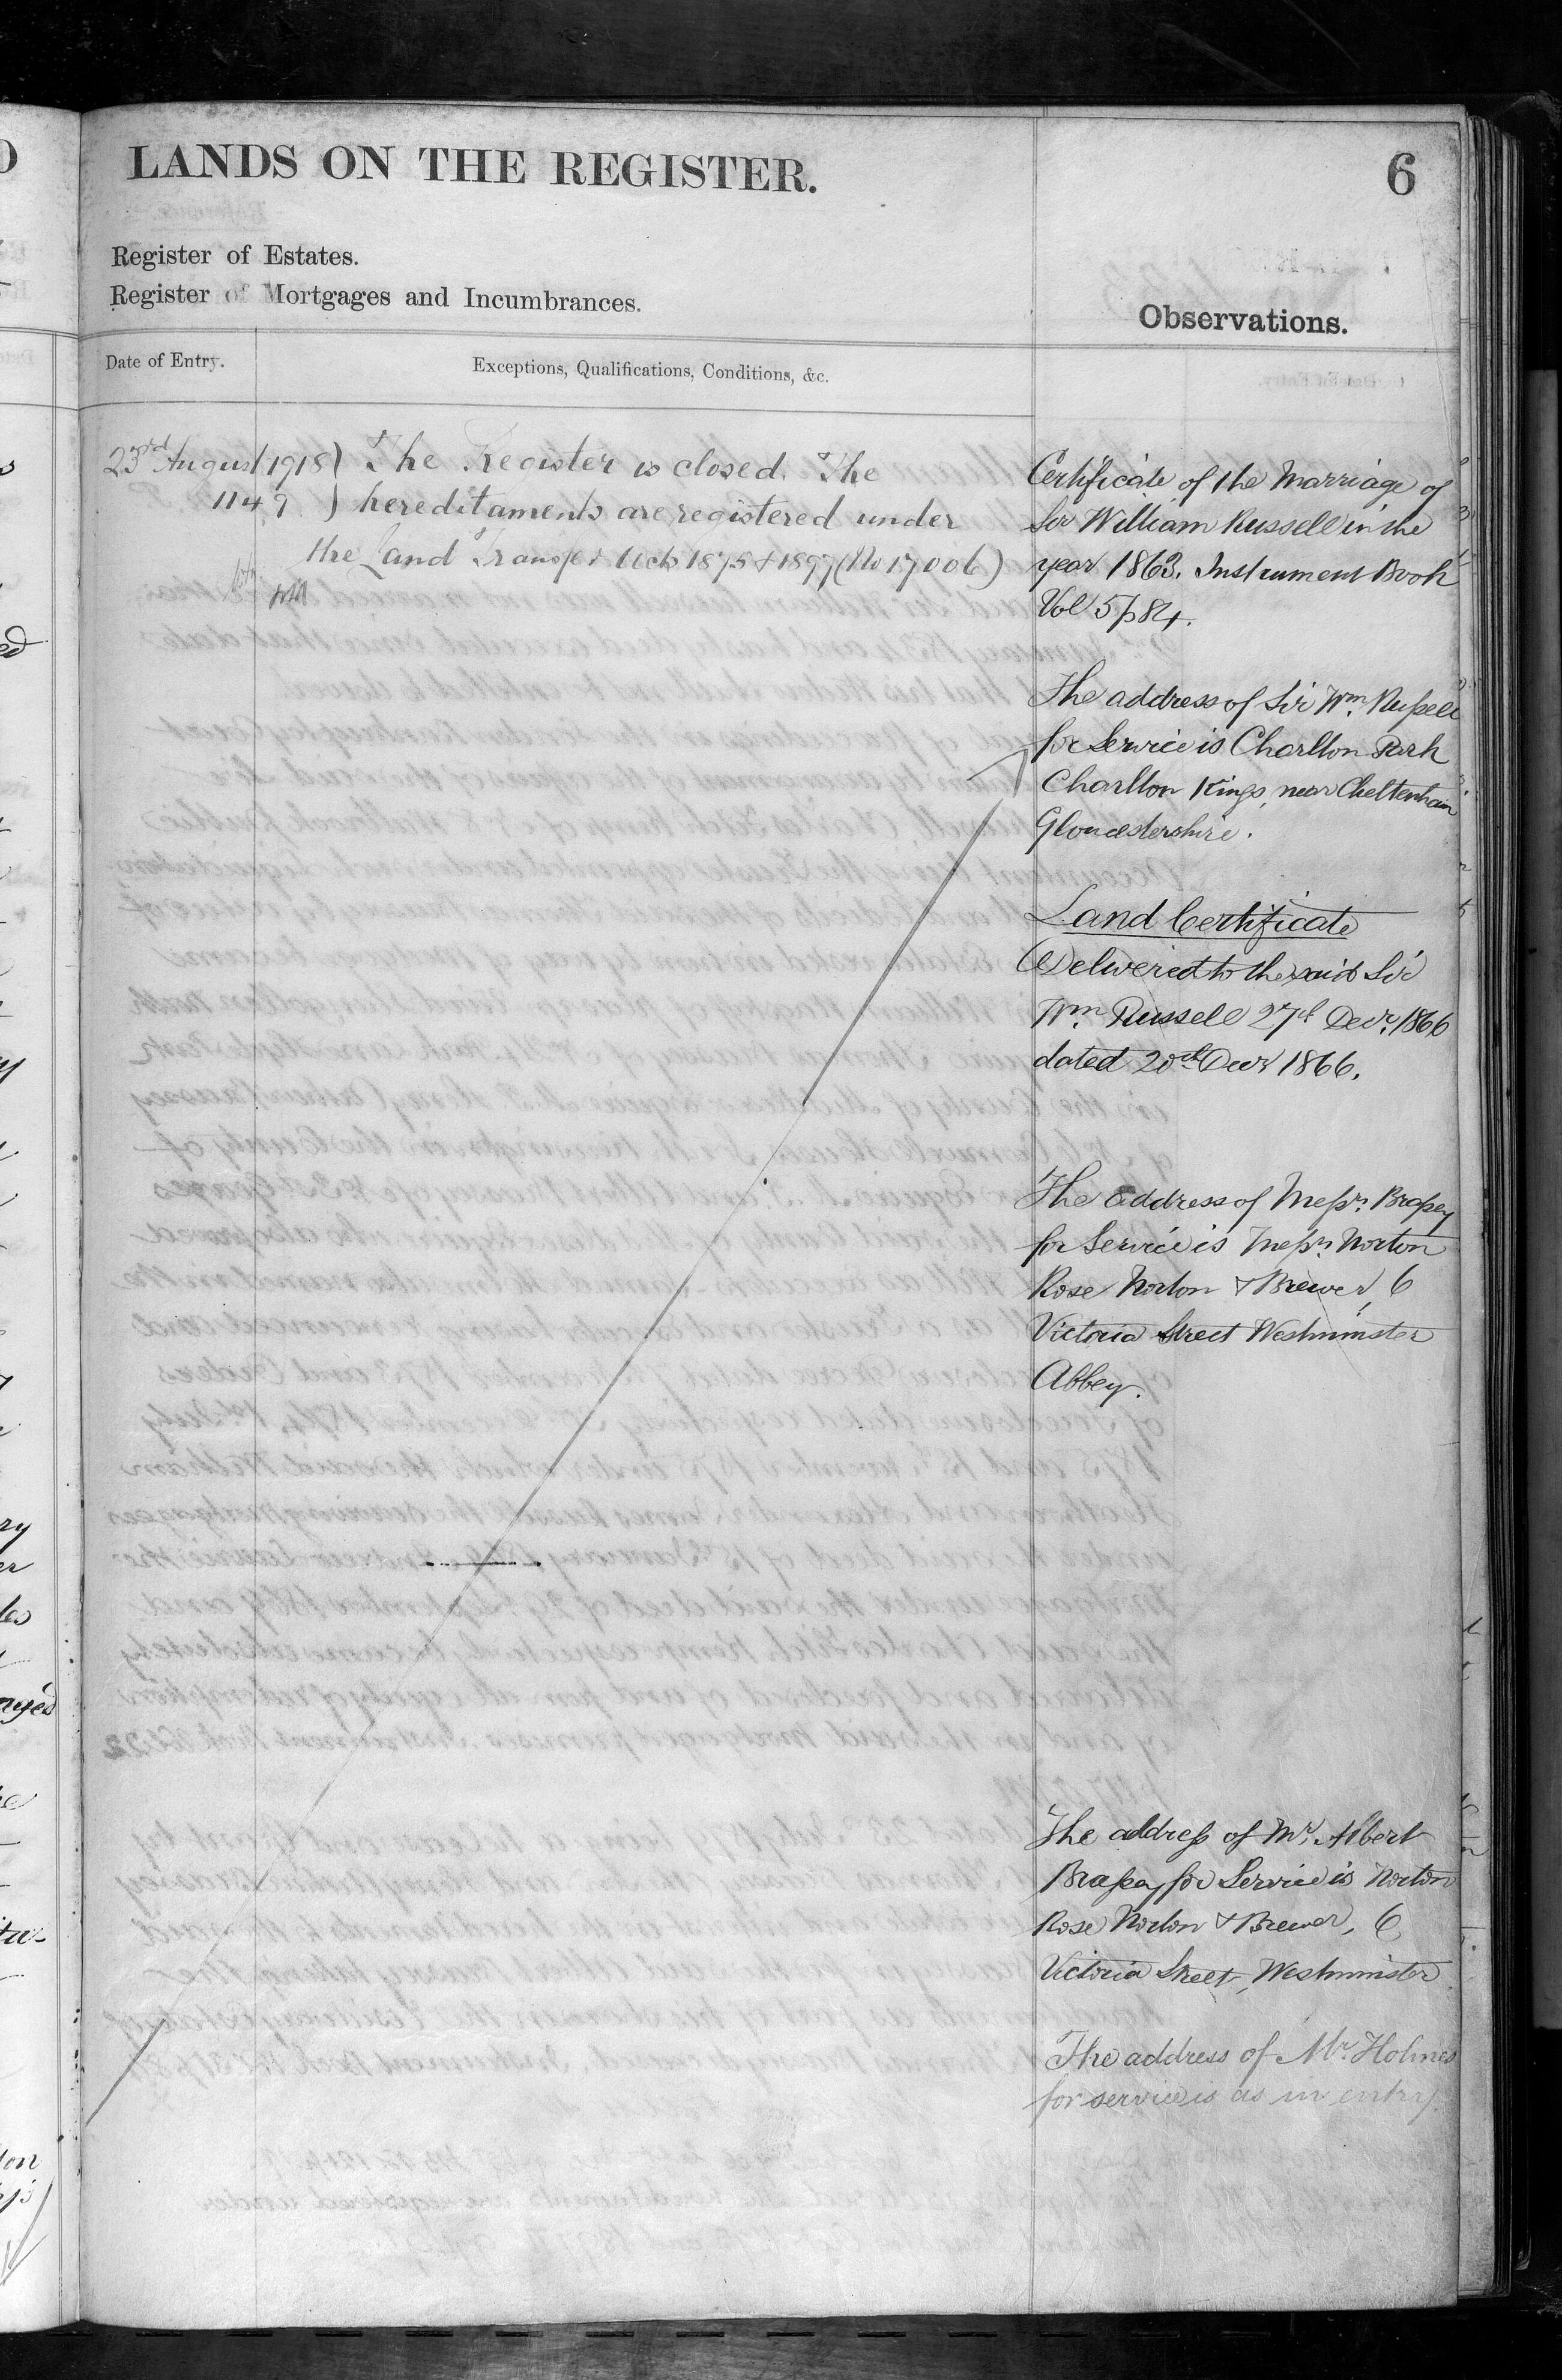 LANDS ON THE REGISTER.
6
Register of Estates.
Register of Mortgages and Incumbrances.
Observations.
Date of Entry.
Exceptions, Qualifications, Conditions, &c.
23rd August 1918 } The Register is closed. The
1149 } hereditaments are registered under
the Land Transfer Acts 1875 & 1897 (No 17006)
Certificate of the Marriage of
Sir William Russell in the
year 1863. Instrument Book
Vol 5 p 84.
The address of Sir Wm. Russell
for Service is Charlton Park
Charlton Kings, near Cheltenham
Gloucestershire.
Land Certificate
Delivered to the said Sir
Wm. Russell 27th Decr. 1866
dated 20th Decr 1866.
The address of Messrs. Brassey
for Service is Messrs. Norton
Rose Norton & Brewer, 6
Victoria Street Westminster
Abbey.
The address of Mr. Albert
Brassey for Service is Norton
Rose Norton & Brewer, 6
Victoria Street, Westminster
The address of Mr. Holmes
for service is as in entry.